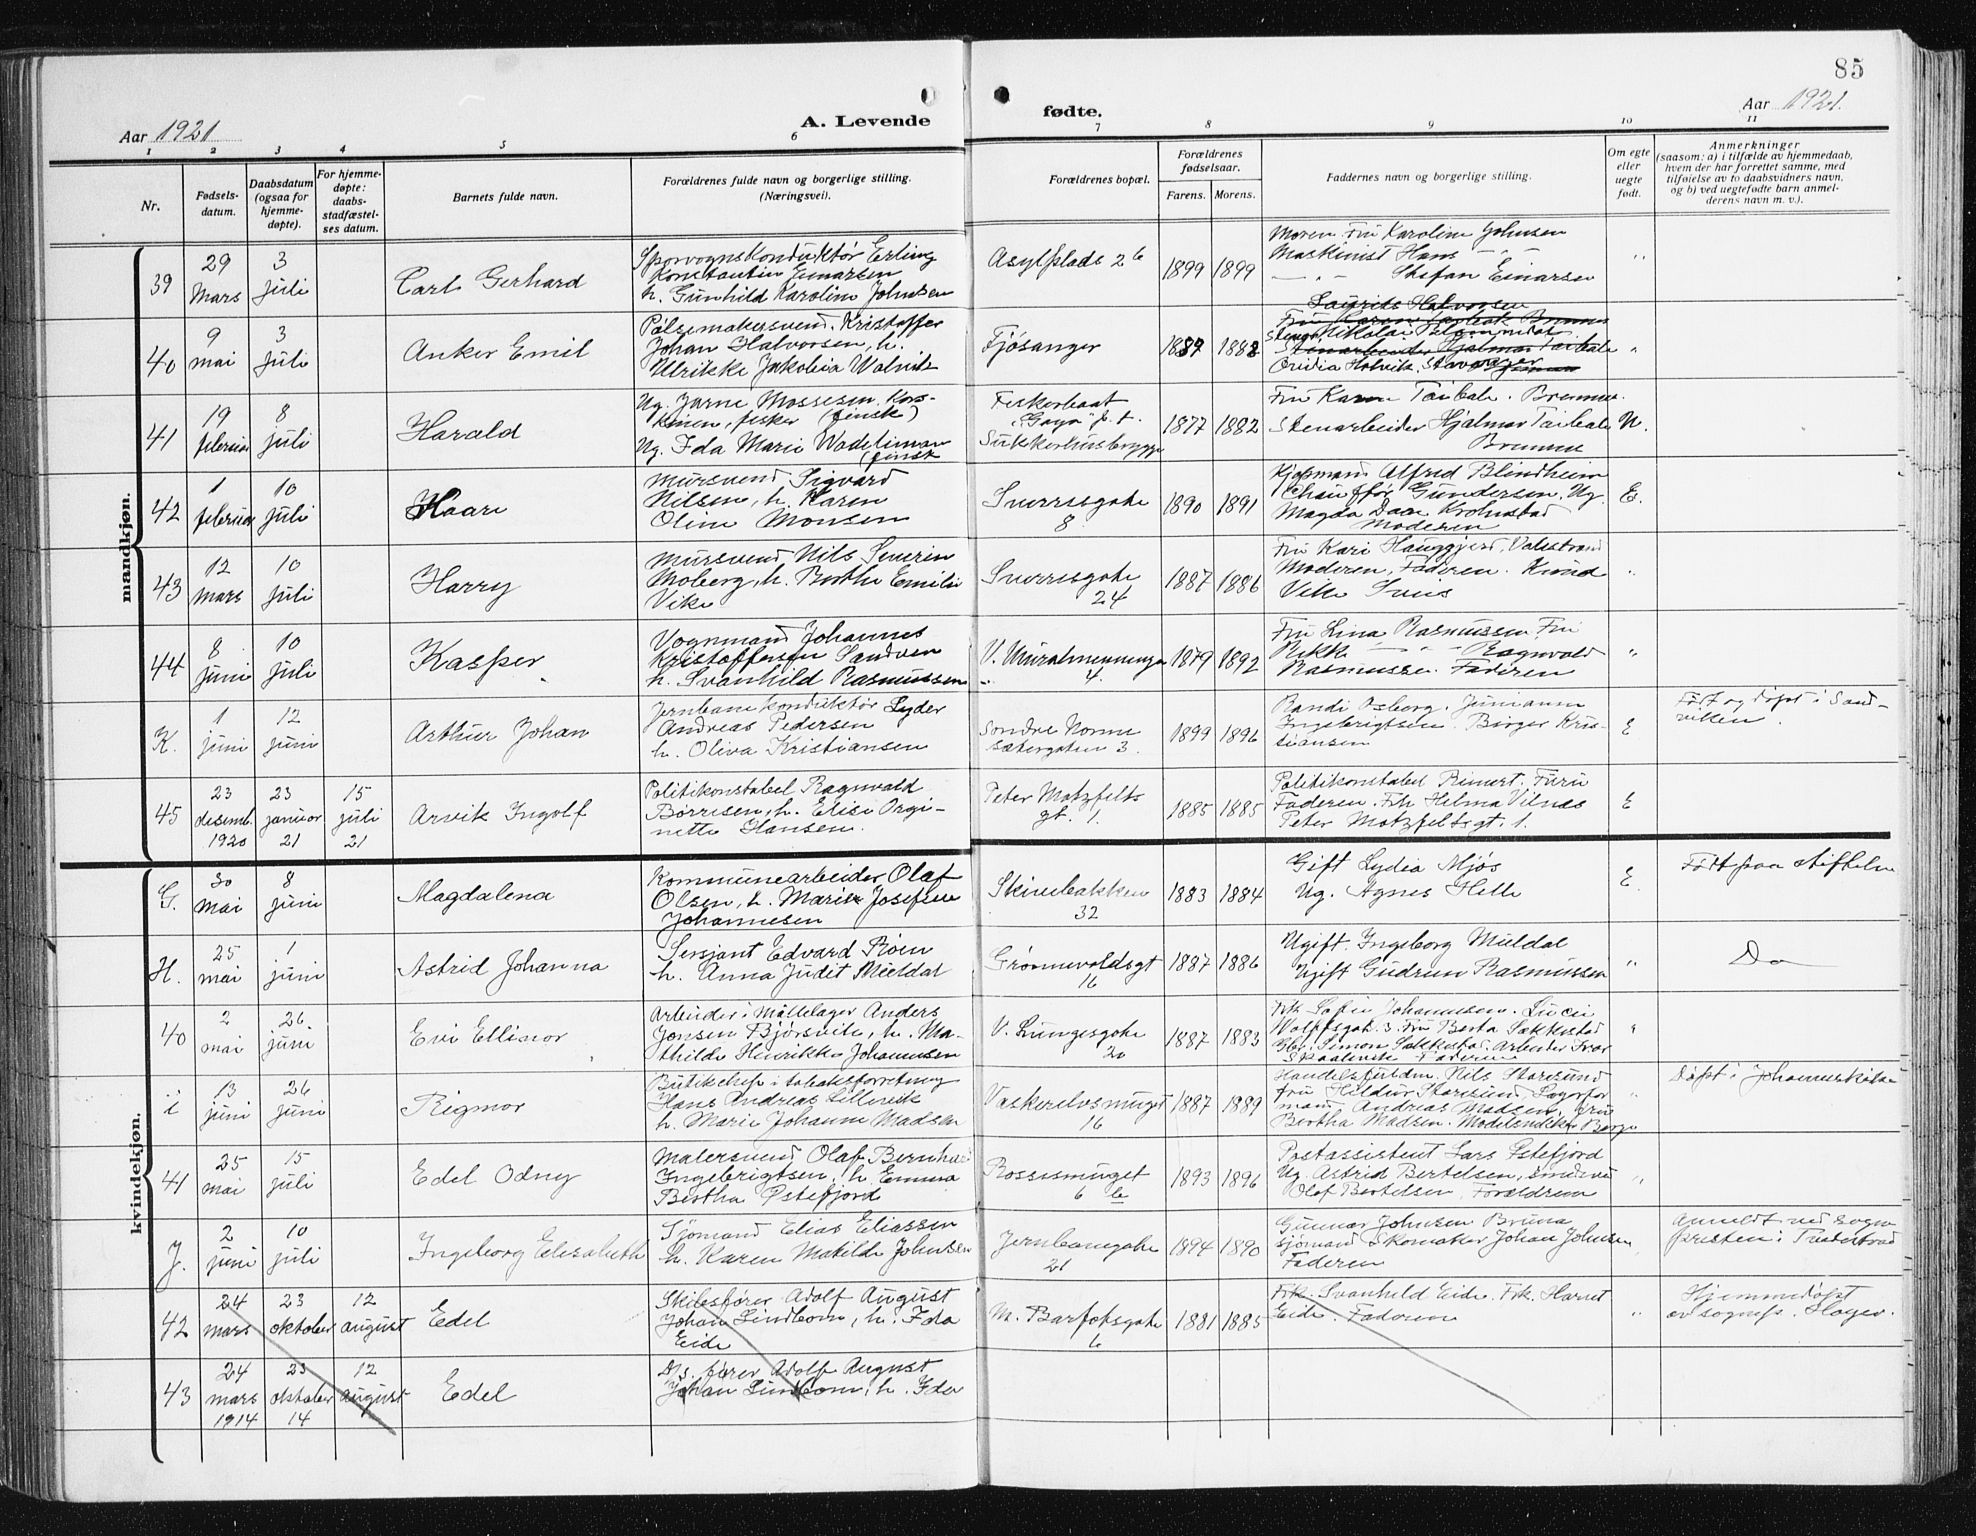 85
Aar 1921
A. Levende
fødte.
Aar 1921.
1 2 3 4 5 6 7 8 9 10 11
Nr.
Fødsels-
datum.
Daabsdatum
(ogsaa for
hjemme-
døpte).
For hjemme-
døpte:
daabs-
stadfæstel-
ses datum.
Barnets fulde navn.
Forældrenes fulde navn og borgerlige stilling.
(Næringsvei).
Forældrenes bopæl.
Forældrenes
fødselsaar.
Farens. Morens.
Faddernes navn og borgerlige stilling.
Om egte
eller
uegte
født.
Anmerkninger
(saasom: a) i tilfælde av hjemmedaab,
hvem der har forrettet samme, med
tilføielse av to daabsvidners navn,
og b) ved uegtefødte barn anmel-
derens navn m. v.).
mandkjøn.
39
29
Mars
3
juli
Carl Gerhard
Sporvognskonduktør Erling
Konstantin Einarsen
h. Gunhild Karoline Johnsen
Asylplads 2b
1899 1899
Moren. Fru Karoline Johnsen
Maskinist Hans - " -
- " - Stefan Einarsen
"
40
9
mai
3
juli
Anker Emil
Pølsemakersvend. Kristoffer
Johan Halvorsen, h.
Ulrikke Jakobia Walvik
Fjøsanger
1887 1888
Laurits Halvorsen
Nikolai
Stenarbeider Hjalmar Taibale
"
41
19
februar
8
juli
Harald
Ug. Jarne Mossesen Kors-
kinen, fisker (finsk)
Ug. Ida Marie Wadeliman
(finsk
Fiskerbaat
"Gaya" p. t.
Sukkerhusbrygge
1877 1882
Fru Karen Taibale. Bremnes.
Stenarbeider Hjalmar Taibale
Bremnes
U.
42
1
februar
10
juli
Kaare
Mursvend Sigvard
Nilsen, h. Karen
Oline Monsen
Sverresgate
8
1890 1891
Kjøpmand Alfred Blindheim
Chauffør Gundersen. Ug.
Magda Daae Krohnstad
Moderen
E.
43
12
mars
10
juli
Harry
Mursvend Nils Severin
Moberg, h. Berthe Emilie
Vike
Sverresgate
24
1887 1886
Fru Kari Hauggjerd, Valestrand
Moderen, Faderen. Knud
Vike Sveis
"
44
8
juni
10
juli
Kasper
Vognmand Johannes
Kristoffersen Sandven
h. Svanhild Rasmussen
V. Muralmenningen
4.
1879 1892
Fru Lina Rasmussen Fru
Rikke - " - Ragnvald
Rasmussen Faderen
"
K.
1
juni
12
juni
Arthur Johan
Jernbanekonduktør Lyder
Andreas Pedersen
h. Oliva Kristiansen
Søndre Nonne
sætergaten 3.
1899 1896
Randi Osberg. Jumiann
Ingebrigtsen. Birger Kris-
tiansen
E
Født og døpt i Sand-
viken.
45
23
desemb.
1920
23
januar
21
15
juli
21
Arvik Ingolf
Politikonstabel Ragnvald
Børresen, h. Elise Orgi-
nette Hansen.
Peter Motzfelts
gt. 1.
1885 1885
Politikonstabel Rinert. Furu
Faderen. Frk Helma Vilnes
Peter Motzfeltsgt. 1.
E
kvindekjøn.
G.
30
mai
8
juni
Magdalena
Kommunearbeider Olaf
Olsen, h. Marie Josefine
Johannesen
Skivebakken
32
1883 1884
Gift Lydia Mjøs
Ug. Agnes Helle
E.
Født paa stiftelsen
H.
25
mai
1
juni
Astrid Johanna
Sersjant Edvard Røen
h. Anna Judit Mueldal
Grønnevoldsgt
16
1887 1886
Ugift. Ingeborg Muldal
Ugift Gudrun Rasmussen
"
Do
40
2
mai
26
juni
Evi Ellinor
Arbeider i Møllelager Anders
Jensen Bjørsvik, h. Ma-
thilde Henrikke Johannesen
V. Lungesgate
20
1887 1883
Frk Sofie Johannesen. Lucie
Wolffsgat. 3. Fru Berta Sekkestad
Simon Sekkestad. Arbeider Ivar
Skaalevik Faderen
"
i
13
juni
26
juni
Rigmor
Butikchef i tobaksforretning
Hans Andreas Lillevik
h. Marie Johanne Madsen
Vaskerelvsmuget
16
1887 1889
Handelsfuldm. Nils Storesund
fru Hildur Storesund, Lagerfor
mand Andreas Madsen, fru
Bertha Madsen.
"
Døpt i Johanneskirken
41
25
mai
15
juli
Edel Odny
Malersvend Olaf Bernhard
Ingebrigtsen, h. Emma
Bertha Østefjord
Rossesmuget
6 b
1893 1896
Postassistent Lars Østefjord
Ug. Astrid Bertelsen, smedsv
Olaf Bertelsen, Forældrene
"
J.
2
juni
10
juli
Ingeborg Elisabeth
Sjømand Elias Eliassen
h. Karen Matilde Johnsen
Jernbanegate
21
1894 1890
Gunnar Johnsen Bruna
sjømand Skomaker Johan Johnsen
Faderen
"
Anmeldt ved sogne
presten i
42
24
mars
23
oktober
12
august
Edel
Skibsfører Adolf August
Johan Lindbom, h. Ida
Eide
M. Barfotsgate
6
1881 1885
Frk. Svanhild Eide. Frk. Harriet
Eide. Faderen
"
Hjemmedøpt
av sognepr. Hager.
43
24
mars
1914
23
oktober
14
12
august
Edel
fører Adolf August
Johan Lindbom, h. Ida